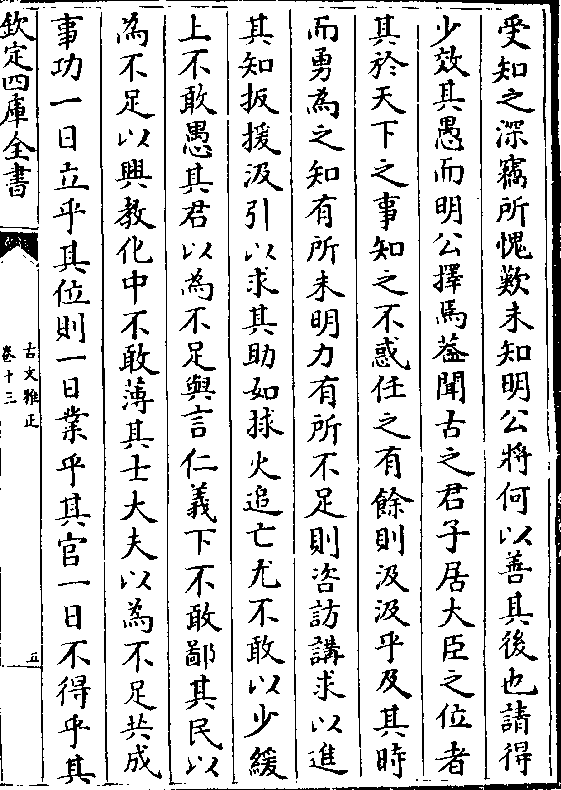 受知之深竊所愧歎未知明公將何以善其後也請得
少效其愚而明公擇焉葢聞古之君子居大臣之位者
其於天下之事知之不惑任之有餘則汲汲乎及其時
而勇為之知有所未明力有所不足則咨訪講求以進
其知扳援汲引以求其助如捄火追亡尤不敢以少緩
上不敢愚其君以為不足與言仁義下不敢鄙其民以
為不足以興教化中不敢薄其士大夫以為不足共成
事功一日立乎其位則一日業乎其官一日不得乎其
欽定四庫全書
古文雅正
卷十三
五